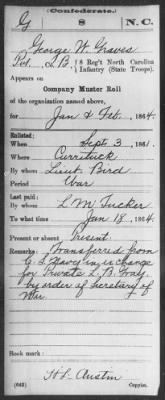 (Confederate.)
G 8 N.C.
George W Graves
Pvt. , Co. B, 8 Reg't North Carolina
Infantry (State Troops).
Appears on
Company Muster Roll
of the organization named above,
for Jan & Feb., 1864.
Enlisted:
When Sept 3, 1861.
Where Currituck
By whom Lieut. Bird
Period War
Last paid:
By whom L M Tucker
To what time Jan 18, 1864.
Present or absent Present
Remarks: Transferred from
in exchange
for Private L. B. Gray
by order of Secretary of
War.
Book mark:
H L Austin
(642) Copyist.